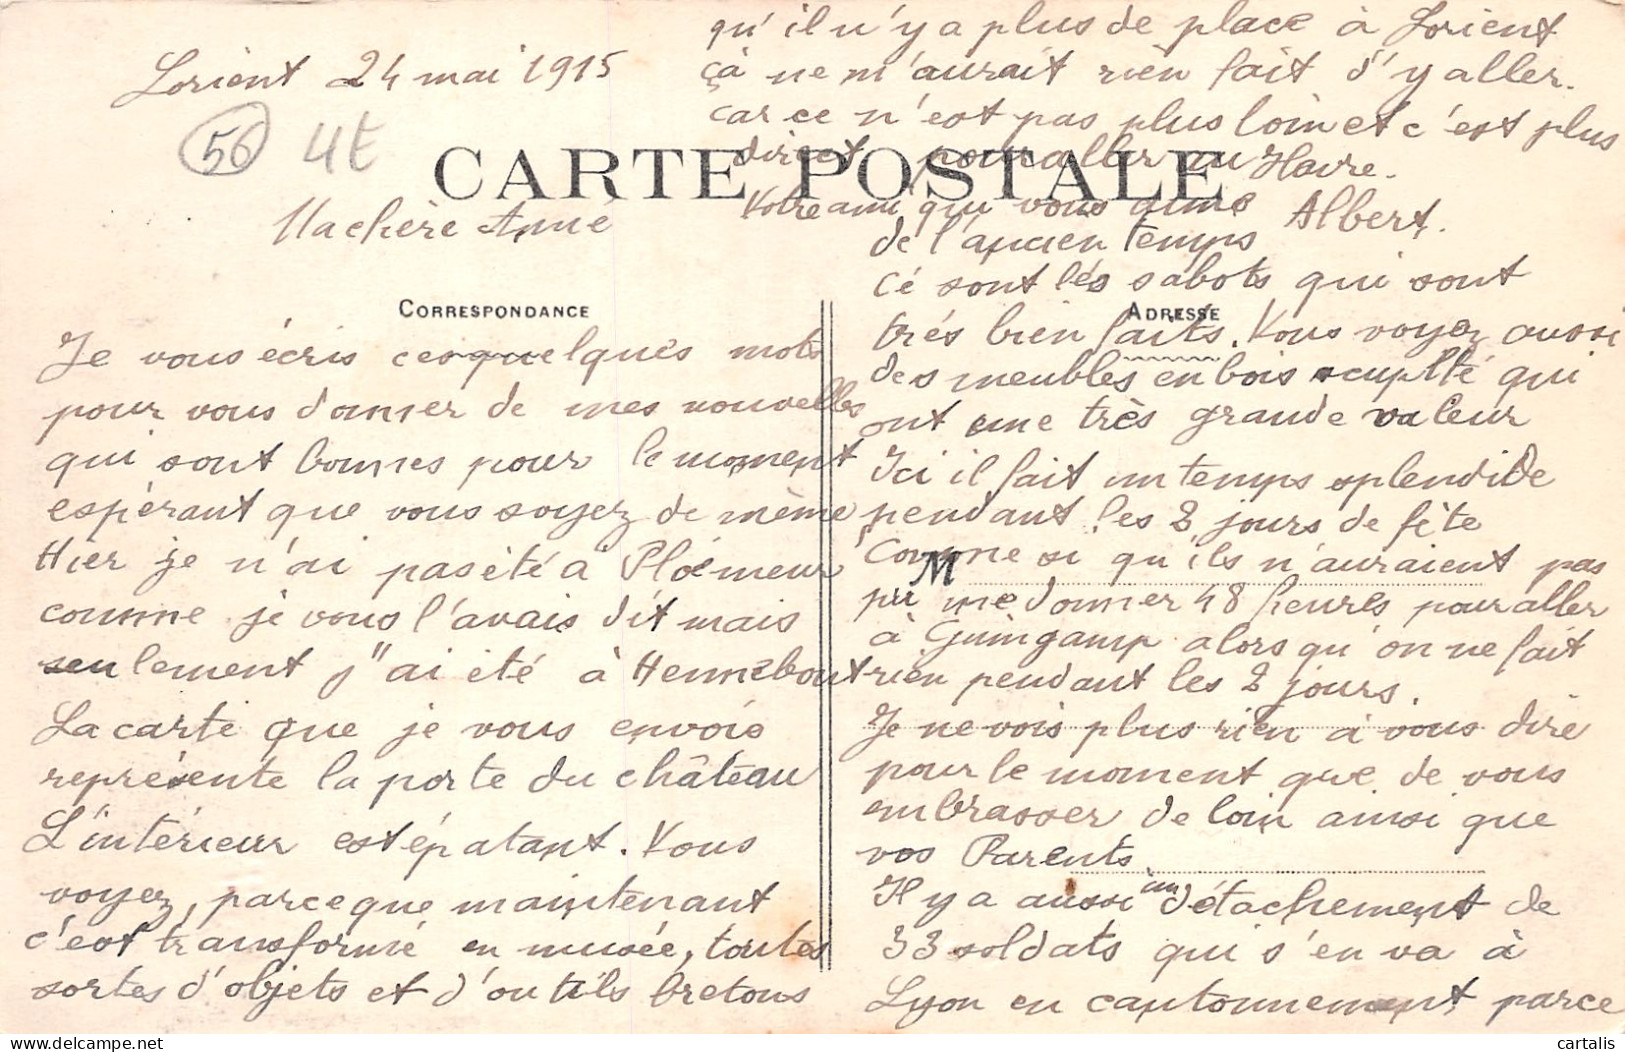 Lorient 24 mai 1915
56 4E
CARTE POSTALE
Machère Anné
CORRESPONDANCE
Je vous écris ces quelques mots
pour vous donner de mes nouvelles
qui sont bonnes pour le moment
espérant que vous soyez de même
Hier je n'ai pas été à Ploemeur
comme je vous l'avais dit mais
seulement j'ai été à Hennebont
La carte que je vous envoie
représente la porte du château
L'intérieur est épatant. Vous
voyez, parce que maintenant
c'est transformé en musée, toutes
sortes d'objets et d'outils bretons
de l'ancien temps
Cé sont les sabots qui sont
très bien faits. Vous voyez aussi
ADRESSE
des meubles en bois scuplté qui
ont une très grande valeur
Ici il fait un temps splendide
pendant les 2 jours de fête
Comme si qu'ils n'auraient pas
M
pu me donner 48 heures pour aller
à Guingamp alors qu'on ne fait
rien pendant les 2 jours.
Je ne vois plus rien à vous dire
pour le moment que de vous
embrasser de loin ainsi que
vos Parents.
Il y a aussi un détachement de
33 soldats qui s'en va à
Lyon en cantonnement parce
qu'il n'y a plus de place à Lorient
çà ne m'aurait rien fait d'y aller.
car ce n'est pas plus loin et c'est plus
direct pour aller au Havre.
Votre ami qui vous aime
Albert.
cartalis